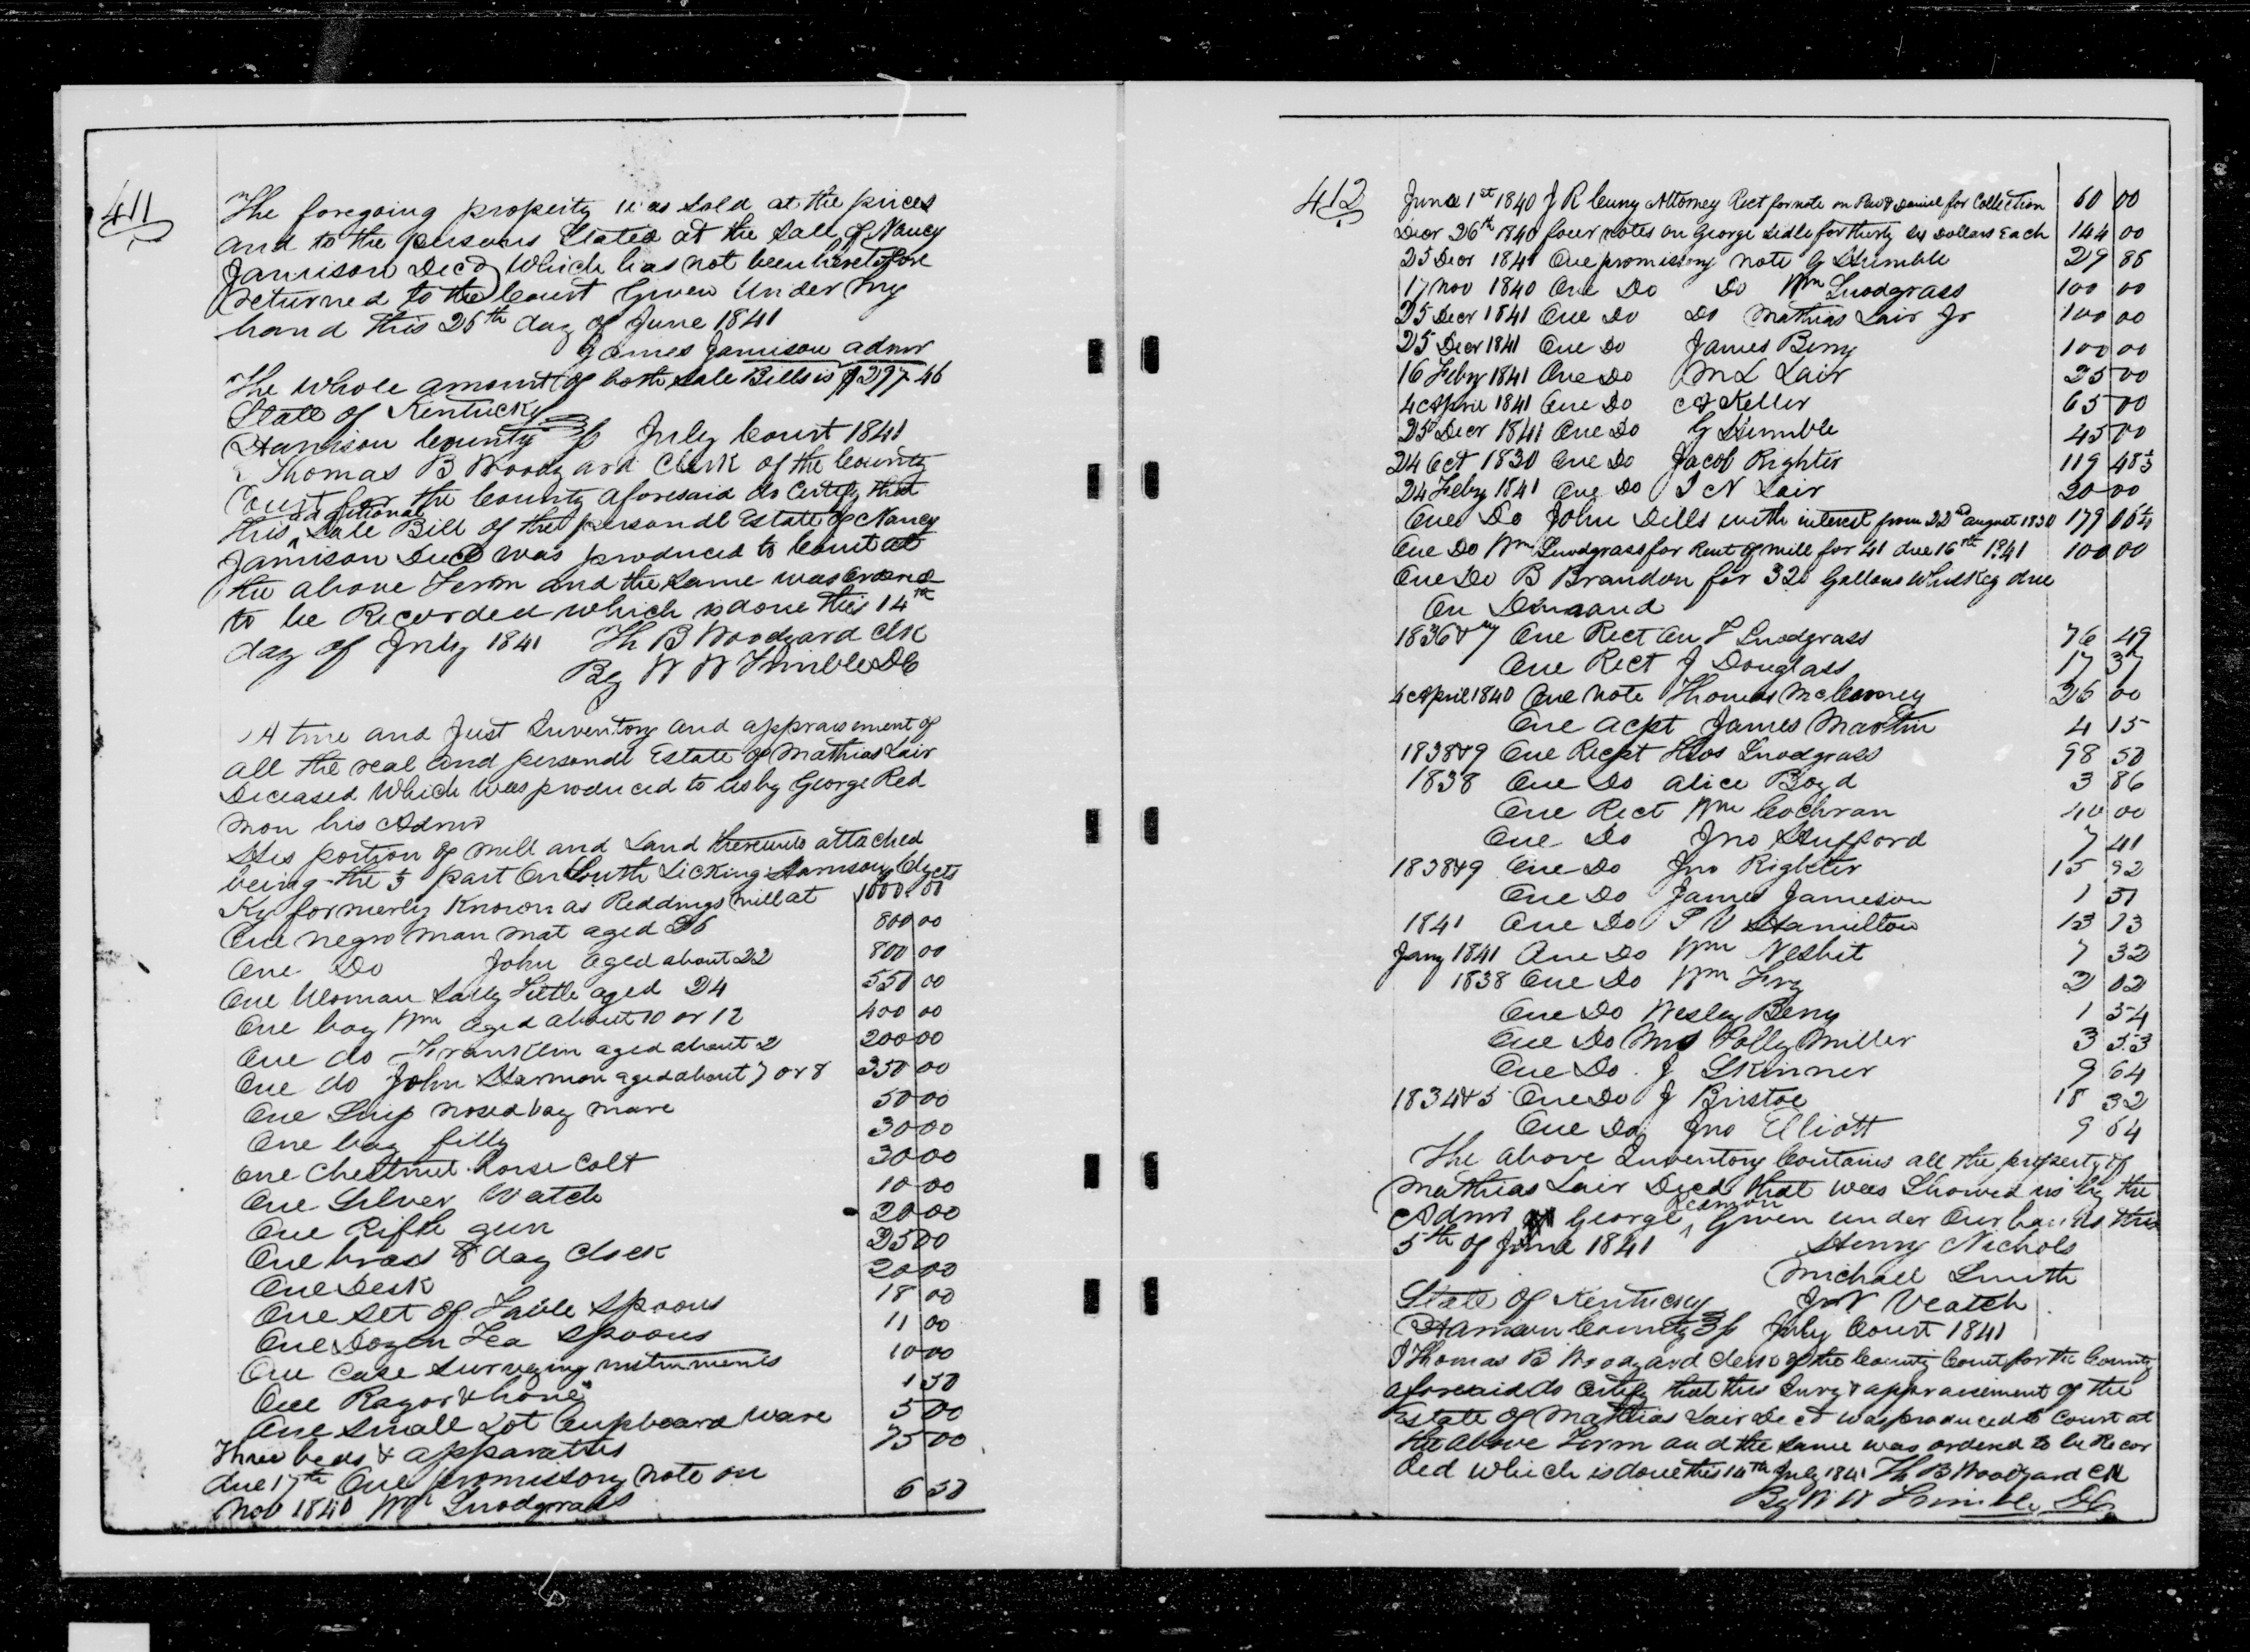 411
The foregoing property was sold at the prices
and to the persons Stated at the Sale of Nancy
Jamison Decd Which has not been heretofore
returned to the Court Given Under my
hand this 25th day of June 1841
James Jamison admr
The whole amount of both Sale Bills is $297.46
State of Kentucky
Harrison County July Court 1841
I Thomas B Woodyard Clerk of the County
Court for the County aforesaid do Certify that
this additional Sale Bill of the personal Estate of Nancy
Jamison Decd was produced to Court at
the above Term and the same was ordered
to be Recorded which is done this 14th
day of July 1841 Th B Woodyard Clk
By W W Trimble DC
A true and Just Inventory and appraisement of
all the real and personal Estate of Mathias Lair
Deceased Which was produced to us by George Red
mon his Admr
His portion of mill and Land thereunto attached
being the 1/3 part On South Licking Harrison Cty
Ky formerly Known as Reddings mill at 1000.00
One negro man mat aged 26 800 00
One Do John aged about 22 800 00
One Woman Sally Little aged 24 550 00
One boy Wm aged about 10 or 12 400 00
One do Franklin aged about 2 200 00
One do John Harmon aged about 7 or 8 350 00
One Snip nosed bay mare 50 00
One bay filly 30 00
one Chestnut horse Colt 30 00
One Silver Watch 10 00
One Rifle gun 20 00
One brass 8 day Clock 25 00
One Desk 20 00
One Set of Table Spoons 18 00
One Dozen Tea Spoons 11 00
One Case Surveying instruments 10 00
One Razor & hone 1 50
One Small Lot Cupboard Ware 5 00
Three beds & apparatus 75 00
due 17th One promissory note on
Nov 1840 Wm Snodgrass 6 50
412
June 1st 1840 J R Curry Attorney Rect for note on & Daniel for Collection 60 00
Decr 26th 1840 four notes on George Sidle for thirty six Dollars Each 144 00
25 Decr 1841 One promissory note G Humble 29 85
17 Nov 1840 One Do Do Wm Snodgrass 100 00
25 Decr 1841 One Do Do Mathias Lair Jr 100 00
25 Decr 1841 One Do James Berry 100 00
16 Feby 1841 One Do M L Lair 25 00
4 April 1841 One Do A Keller 65 00
25 Decr 1841 One Do G Humble 45 00
24 Oct 1830 One Do Jacob Righter 119 48
24 Feby 1841 One Do I N Lair 20 00
One Do John Dills with interest from 22nd august 1830 179 06 1/4
One Do Wm Snodgrass for Rent of mill for 41 due 16th 1841 100 00
One Do B Brandon for 320 Gallons Whiskey due
On Demand
1836 & 7 One Rect on J Snodgrass 76 49
One Rect J Douglass 17 37
4 April 1840 One note Thomas 26 00
One acpt James Martin 4 15
1838 & 9 One Recpt Thos Snodgrass 98 50
1838 One Do Alice Boyd 3 86
One Rect Wm Cochran 40 00
One Do Jno Stufford 7 41
1838 & 9 One Do Jno Righter 15 92
One Do James Jameson 1 51
1841 One Do S V Hamilton 13 13
Jany 1841 One Do Wm Nesbit 7 32
1838 One Do Wm Fry 2 02
One Do Wesley Berry 1 54
One Do Mrs Polly Miller 3 53
One Do J Skinner 9 64
1834 & 5 One Do J Bristoe 18 32
One Do Jno Elliott 9 64
The above Inventory Contains all the property of
Mathias Lair Decd that was Showed us by the
Admr George Redmon Given under Our hands this
5th of June 1841 Henry Nichols
Michael Smith
State of Kentucky J N Veatch
Harrison County July Court 1841
I Thomas B Woodyard Clerk of the County Court for the County
aforesaid do Certify that this Invy & appraisement of the
Estate of Mathias Lair Decd was produced to Court at
the above Term and the same was ordered to be Recor
ded which is done this 14th July 1841 Th B Woodyard Clk
By W W Trimble DC